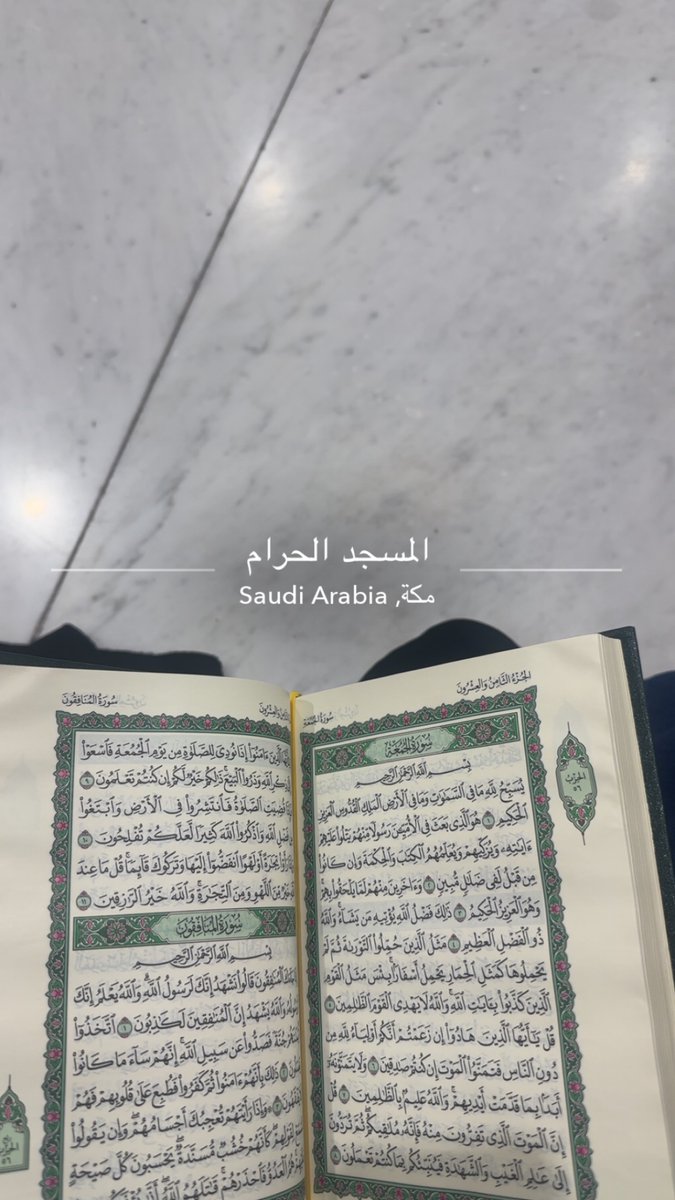 المسجد الحرام
مكة, Saudi Arabia
الجزء الثامن والعشرون
سورة الجمعة
سورة الجمعة
بسم الله الرحمن الرحيم
يُسَبِّحُ لِلَّهِ مَا فِي السَّمَٰوَٰتِ وَمَا فِي الْأَرْضِ الْمَلِكِ الْقُدُّوسِ الْعَزِيزِ
الْحَكِيمِ ١ هُوَ الَّذِي بَعَثَ فِي الْأُمِّيِّينَ رَسُولًا مِّنْهُمْ يَتْلُوا عَلَيْهِمْ
ءَايَٰتِهِ وَيُزَكِّيهِمْ وَيُعَلِّمُهُمُ الْكِتَٰبَ وَالْحِكْمَةَ وَإِن كَانُوا
مِن قَبْلُ لَفِي ضَلَٰلٍ مُّبِينٍ ٢ وَءَاخَرِينَ مِنْهُمْ لَمَّا يَلْحَقُوا بِهِمْ
وَهُوَ الْعَزِيزُ الْحَكِيمُ ٣ ذَٰلِكَ فَضْلُ اللَّهِ يُؤْتِيهِ مَن يَشَاءُ وَاللَّهُ
ذُو الْفَضْلِ الْعَظِيمِ ٤ مَثَلُ الَّذِينَ حُمِّلُوا التَّوْرَىٰةَ ثُمَّ لَمْ
يَحْمِلُوهَا كَمَثَلِ الْحِمَارِ يَحْمِلُ أَسْفَارًا بِئْسَ مَثَلُ الْقَوْمِ
الَّذِينَ كَذَّبُوا بِـَٔايَٰتِ اللَّهِ وَاللَّهُ لَا يَهْدِي الْقَوْمَ الظَّٰلِمِينَ ٥
قُلْ يَٰأَيُّهَا الَّذِينَ هَادُوا إِن زَعَمْتُمْ أَنَّكُمْ أَوْلِيَاءُ لِلَّهِ مِن
دُونِ النَّاسِ فَتَمَنَّوُا الْمَوْتَ إِن كُنتُمْ صَٰدِقِينَ ٦ وَلَا يَتَمَنَّوْنَهُ
أَبَدًا بِمَا قَدَّمَتْ أَيْدِيهِمْ وَاللَّهُ عَلِيمٌ بِالظَّٰلِمِينَ ٧ قُلْ
إِنَّ الْمَوْتَ الَّذِي تَفِرُّونَ مِنْهُ فَإِنَّهُ مُلَٰقِيكُمْ ثُمَّ تُرَدُّونَ
إِلَىٰ عَٰلِمِ الْغَيْبِ وَالشَّهَٰدَةِ فَيُنَبِّئُكُم بِمَا كُنتُمْ تَعْمَلُونَ ٨
الحزب ٥٦
سورة المنافقون
الَّذِينَ ءَامَنُوا إِذَا نُودِيَ لِلصَّلَوٰةِ مِن يَوْمِ الْجُمُعَةِ فَاسْعَوْا
ذِكْرِ اللَّهِ وَذَرُوا الْبَيْعَ ذَٰلِكُمْ خَيْرٌ لَّكُمْ إِن كُنتُمْ تَعْلَمُونَ ٩
قُضِيَتِ الصَّلَوٰةُ فَانتَشِرُوا فِي الْأَرْضِ وَابْتَغُوا
فَضْلِ اللَّهِ وَاذْكُرُوا اللَّهَ كَثِيرًا لَّعَلَّكُمْ تُفْلِحُونَ ١٠
تِجَٰرَةً أَوْ لَهْوًا انفَضُّوا إِلَيْهَا وَتَرَكُوكَ قَائِمًا قُلْ مَا عِندَ
خَيْرٌ مِّنَ اللَّهْوِ وَمِنَ التِّجَٰرَةِ وَاللَّهُ خَيْرُ الرَّٰزِقِينَ ١١
سورة المنافقون
بسم الله الرحمن الرحيم
الْمُنَٰفِقُونَ قَالُوا نَشْهَدُ إِنَّكَ لَرَسُولُ اللَّهِ وَاللَّهُ يَعْلَمُ إِنَّكَ
وَاللَّهُ يَشْهَدُ إِنَّ الْمُنَٰفِقِينَ لَكَٰذِبُونَ ١ اتَّخَذُوا
جُنَّةً فَصَدُّوا عَن سَبِيلِ اللَّهِ إِنَّهُمْ سَاءَ مَا كَانُوا
ذَٰلِكَ بِأَنَّهُمْ ءَامَنُوا ثُمَّ كَفَرُوا فَطُبِعَ عَلَىٰ قُلُوبِهِمْ فَهُمْ
وَإِذَا رَأَيْتَهُمْ تُعْجِبُكَ أَجْسَامُهُمْ وَإِن يَقُولُوا
كَأَنَّهُمْ خُشُبٌ مُّسَنَّدَةٌ يَحْسَبُونَ كُلَّ صَيْحَةٍ
هُمُ الْعَدُوُّ فَاحْذَرْهُمْ قَٰتَلَهُمُ اللَّهُ